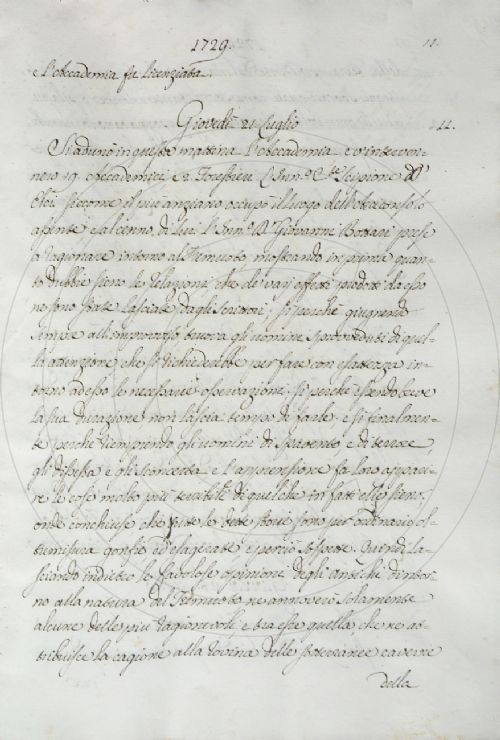 1729.
e l'Accademia fu licenziata
Giovedì 21 Luglio 11.
Si adunò in questa mattina l'Accademia e v'interven-
nero 19. Accademici e 2. Forestieri
siccome il più anziano occupò il luogo dell'Arciconsolo
assente e al cenno di lui l' Giovanni Bottari prese
a ragionare intorno al Tremuoto mostrando in prima quan-
to dubbie sieno le relazioni, che de varj effetti prodotti da esso
ne sono state lasciate dagli Scrittori, sì perchè giugnendo
sempre all'improvviso trova gli uomini sprovveduti di quel-
la attenzione che si richiederebbe per fare con esattezza in-
torno ad esso le necessarie osservazioni. sì perche essendo breve
la sua durazione non lascia tempo di farle. e sì finalmen-
te perchè riempiendo gli uomini di spavento e di terrore,
gli e gli sconcerta e l'apprensione fa loro appari-
re le cose molto più terribili di quelche in fatti elle sieno,
onde conchiuse che tutte le dette storie sono per ordinario ol-
tremisura gonfie ed esagerate e perciò sospette. Quindi la-
sciando indietro le favolose opinioni degli antichi d'intor-
no alla natura del Tremuoto ne annoverò solamente
alcune delle più ragionevoli e tra esse quella che ne at-
tribuisce la cagione alla rovina delle sotterranee caverne
della